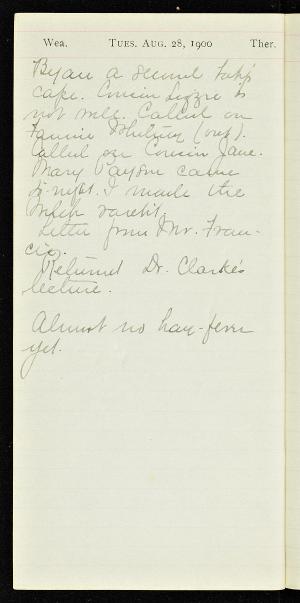 Wea. TUES. AUG. 28, 1900 Ther.
Began a second
cape. Cousin Lizzie is
not well. Called on
Fannie Whitney (out).
Called on Cousin Jane.
Mary Payson came
to-night. I made the
Welch rarebit.
Letter from Mr. Fran-
cis.
Returned Dr. Clarke's
lecture.
Almost no hay-fever
yet.